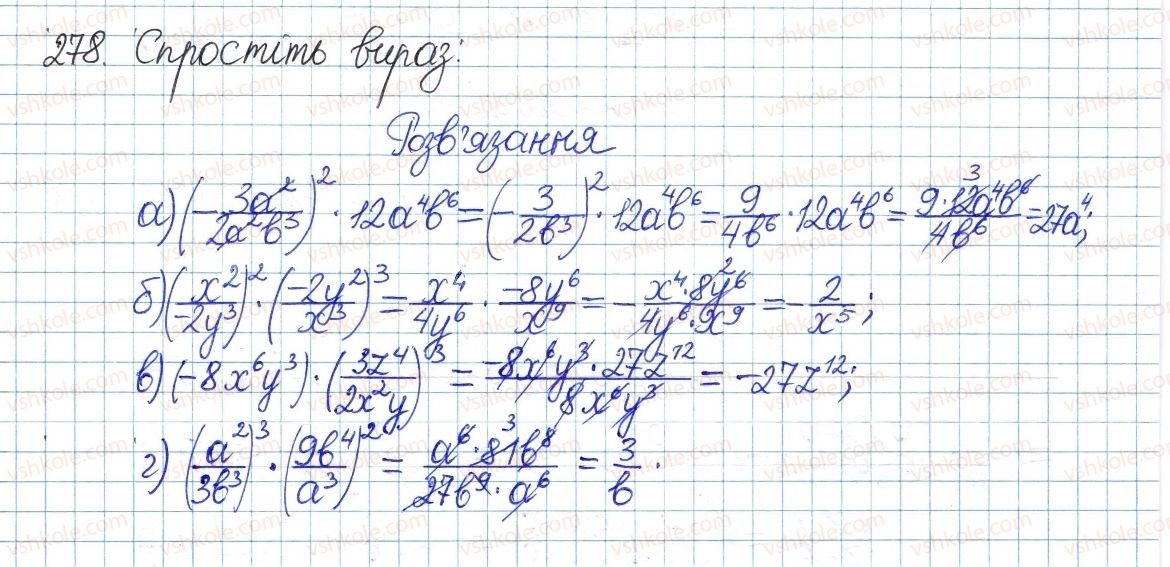 278. Спростіть вираз:
Розв'язання
а) (-3a²/2a²b³)² · 12a⁴b⁶ = (-3/2b³)² · 12a⁴b⁶ = 9/4b⁶ · 12a⁴b⁶ = 9·12a⁴b⁶/4b⁶ = 27a⁴;
б) (x²/-2y³)² · (-2y²/x³)³ = x⁴/4y⁶ · -8y⁶/x⁹ = -x⁴·8y⁶/4y⁶·x⁹ = -2/x⁵;
в) (-8x⁶y³) · (3z⁴/2x²y)³ = -8x⁶y³·27z¹²/8x⁶y³ = -27z¹²;
г) (a²/3b³)³ · (9b⁴/a³)² = a⁶·81b⁸/27b⁹·a⁶ = 3/b.